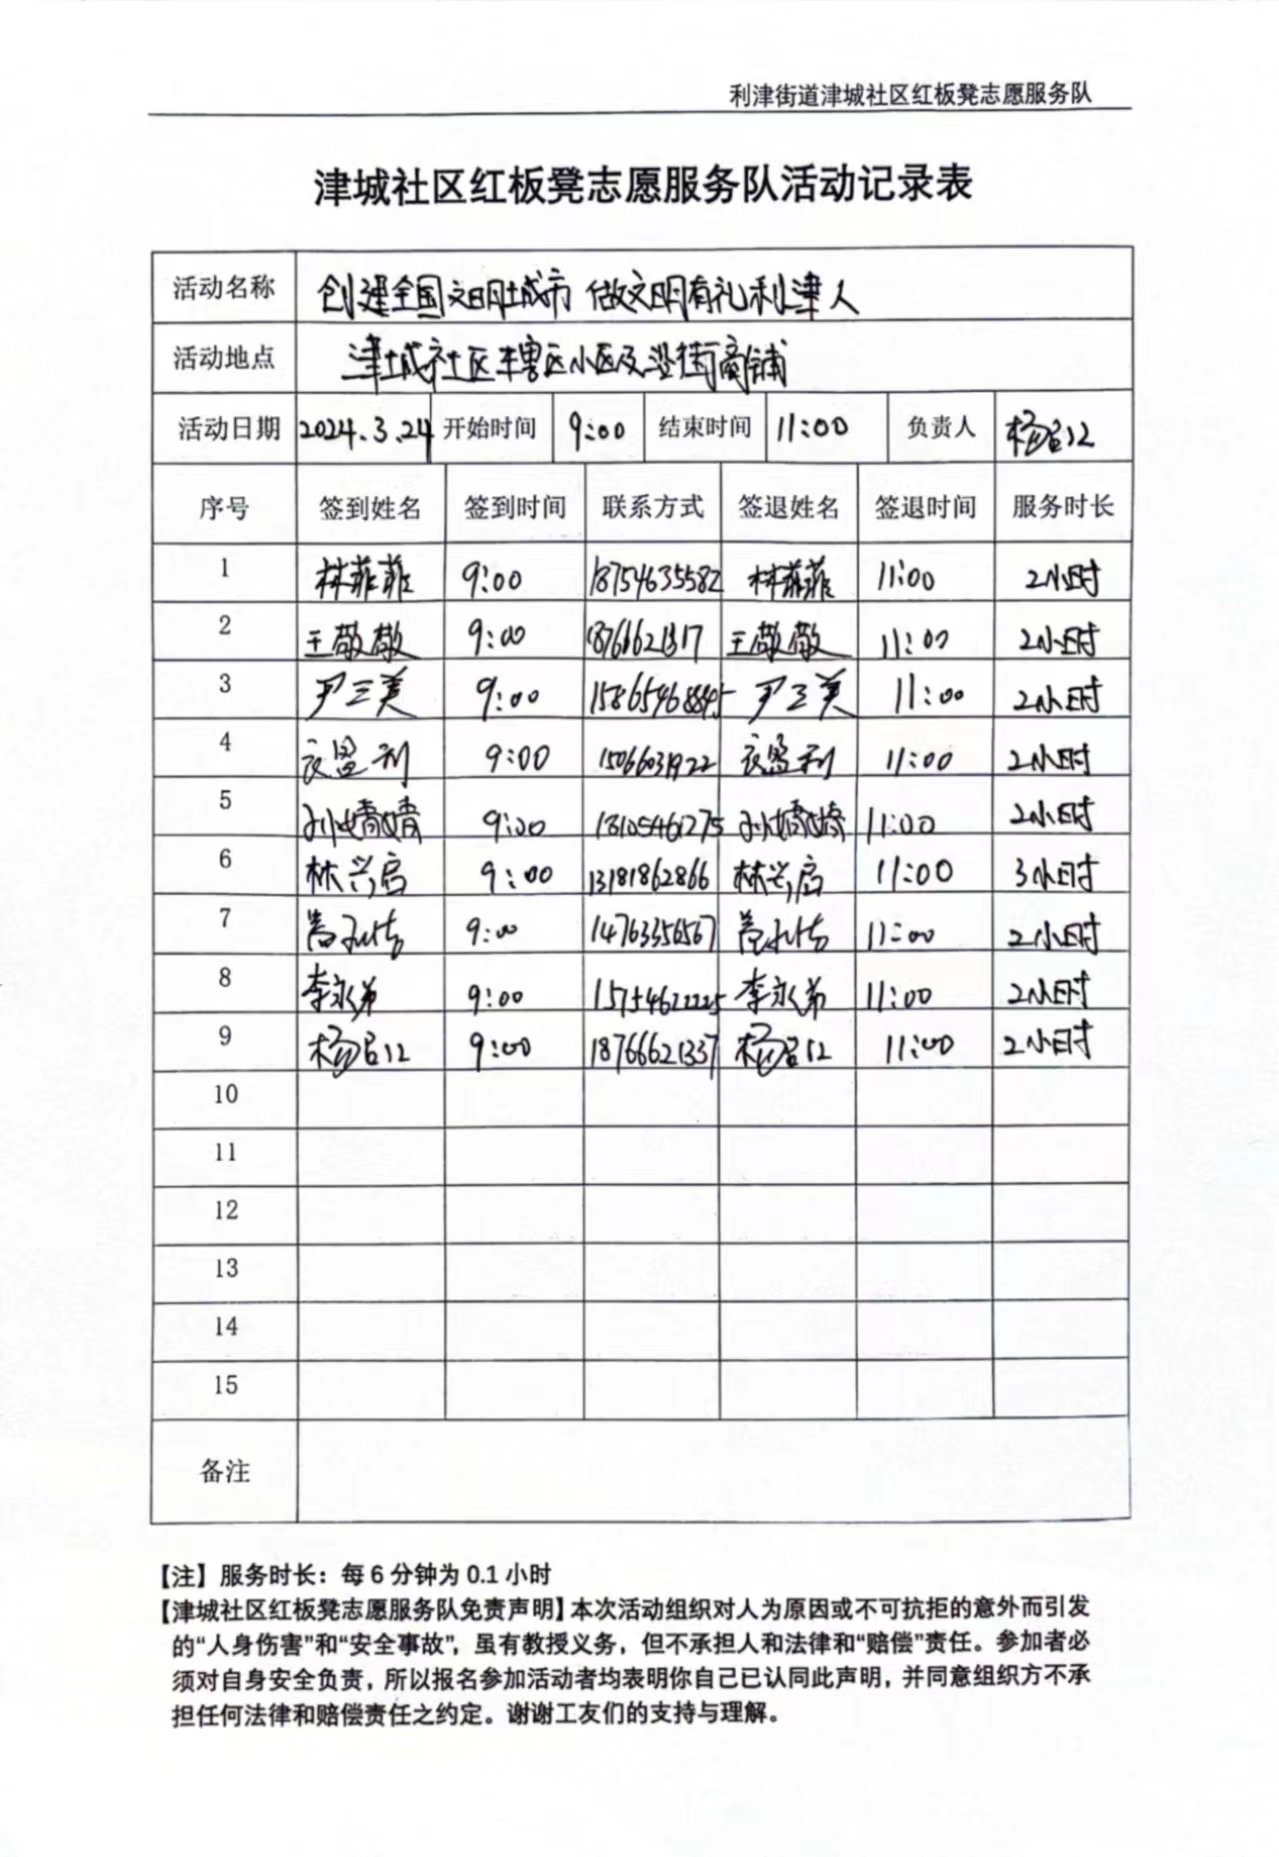 利津街道津城社区红板凳志愿服务队
津城社区红板凳志愿服务队活动记录表
活动名称 创建全国文明城市 做文明有礼利津人
活动地点 津城社区辖区小区及沿街商铺
活动日期 2024.3.24 开始时间 9:00 结束时间 11:00 负责人 杨
序号 签到姓名 签到时间 联系方式 签退姓名 签退时间 服务时长
1 林菲菲 9:00 18754635582 林菲菲 11:00 2小时
2 王敬敬 9:00 王敬敬 11:00 2小时
3 尹三美 9:00 尹三美 11:00 2小时
4 盈利 9:00 盈利 11:00 2小时
5 孙婧婧 9:00 孙婧婧 11:00 2小时
6 林兴启 9:00 13181862866 林兴启 11:00 3小时
7 9:00 11:00 2小时
8 李永弟 9:00 李永弟 11:00 2小时
9 杨 9:00 18766621337 杨 11:00 2小时
10
11
12
13
14
15
备注
【注】服务时长：每6分钟为0.1小时
【津城社区红板凳志愿服务队免责声明】本次活动组织对人为原因或不可抗拒的意外而引发
的“人身伤害”和“安全事故”，虽有教授义务，但不承担人和法律和“赔偿”责任。参加者必
须对自身安全负责，所以报名参加活动者均表明你自己已认同此声明，并同意组织方不承
担任何法律和赔偿责任之约定。谢谢工友们的支持与理解。